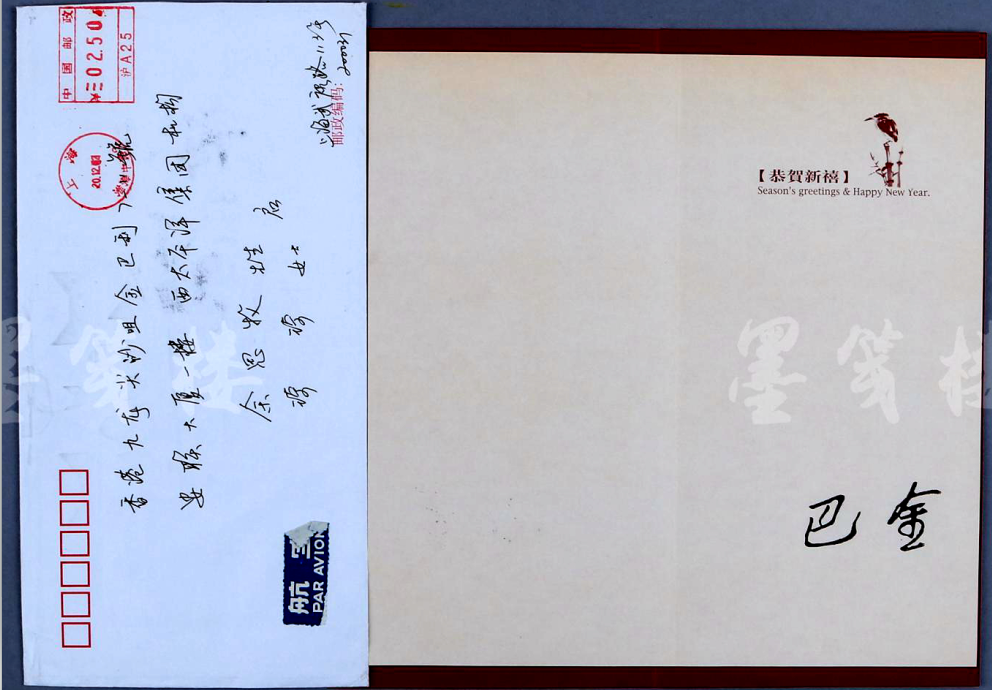 中国邮政
02.50
沪A25
上海
香港九龙尖沙咀金巴利7 號
大厦一楼 西太平洋集团机构
余思牧 先生 启
女士
上海武康路113号
邮政编码: 200031
航空
PAR AVION
【恭賀新禧】
Season's greetings & Happy New Year.
巴金
墨笺楼
墨笺楼